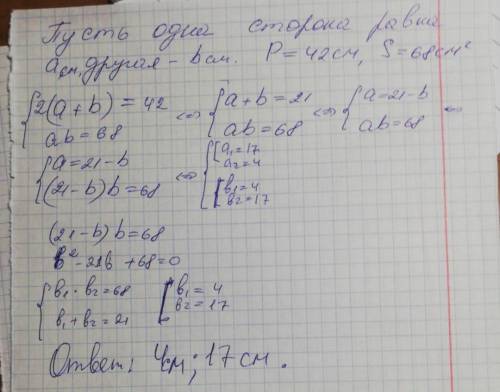 Пусть одна сторона равна
a см, другая – b см. P = 42 см, S = 68 см²
{2(a+b) = 42 ab = 68 <=> {a+b = 21 ab = 68 <=> {a = 21-b ab = 68 <=>
{a = 21-b (21-b)b = 68 <=> {[a₁ = 17 a₂ = 4 [b₁ = 4 b₂ = 17
(21-b)b = 68
b² - 21b + 68 = 0
{b₁ · b₂ = 68 [b₁ = 4
b₁ + b₂ = 21 b₂ = 17
Ответ: 4 см; 17 см.